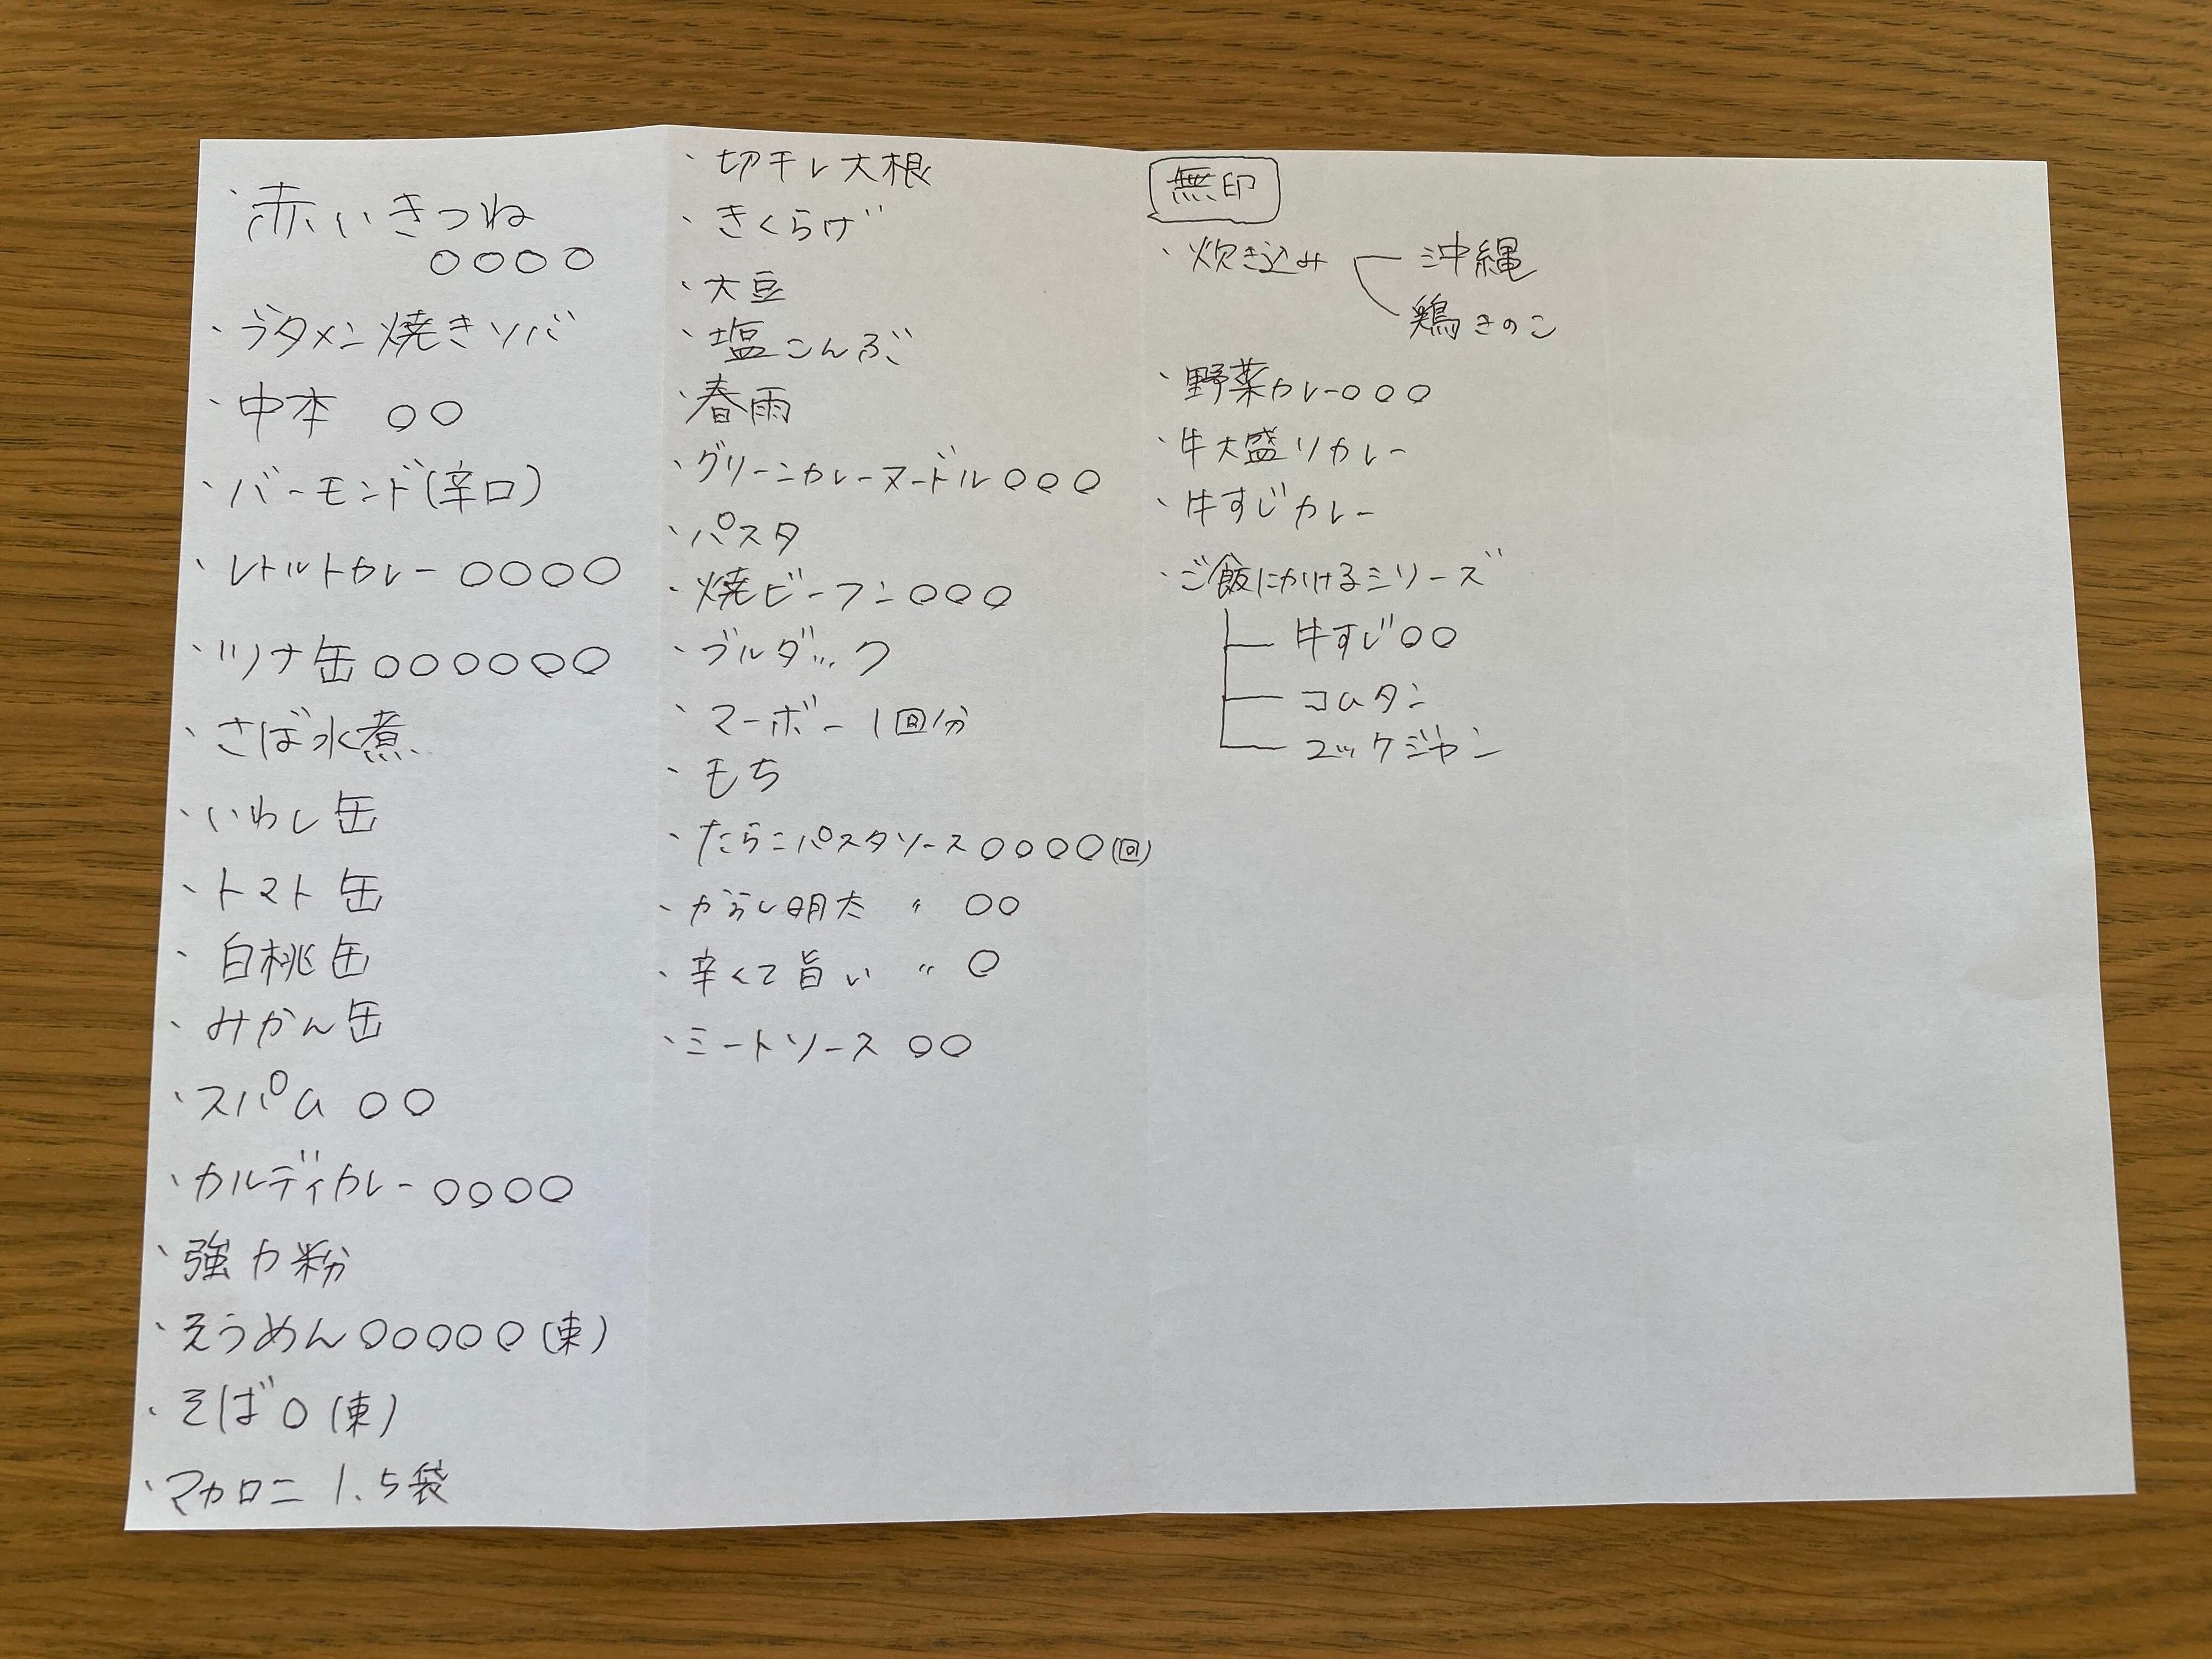 ・赤いきつね
○○○○
・ブタメン焼きソバ
・中本 ○○
・バーモンド(辛口)
・レトルトカレー ○○○○
・ツナ缶 ○○○○○○
・さば水煮
・いわし缶
・トマト缶
・白桃缶
・みかん缶
・スパム ○○
・カルディカレー ○○○○
・強力粉
・そうめん ○○○○○(束)
・そば ○(束)
・マカロニ 1.5袋
・切干し大根
・きくらげ
・大豆
・塩こんぶ
・春雨
・グリーンカレーヌードル ○○○
・パスタ
・焼ビーフン ○○○
・ブルダック
・マーボー 1回分
・もち
・たらこパスタソース ○○○○(回)
・からし明太 〃 ○○
・辛くて旨い 〃 ○
・ミートソース ○○
無印
・炊き込み 沖縄
鶏きのこ
・野菜カレー ○○○
・牛大盛りカレー
・牛すじカレー
・ご飯にかけるシリーズ
牛すじ ○○
コムタン
ユッケジャン